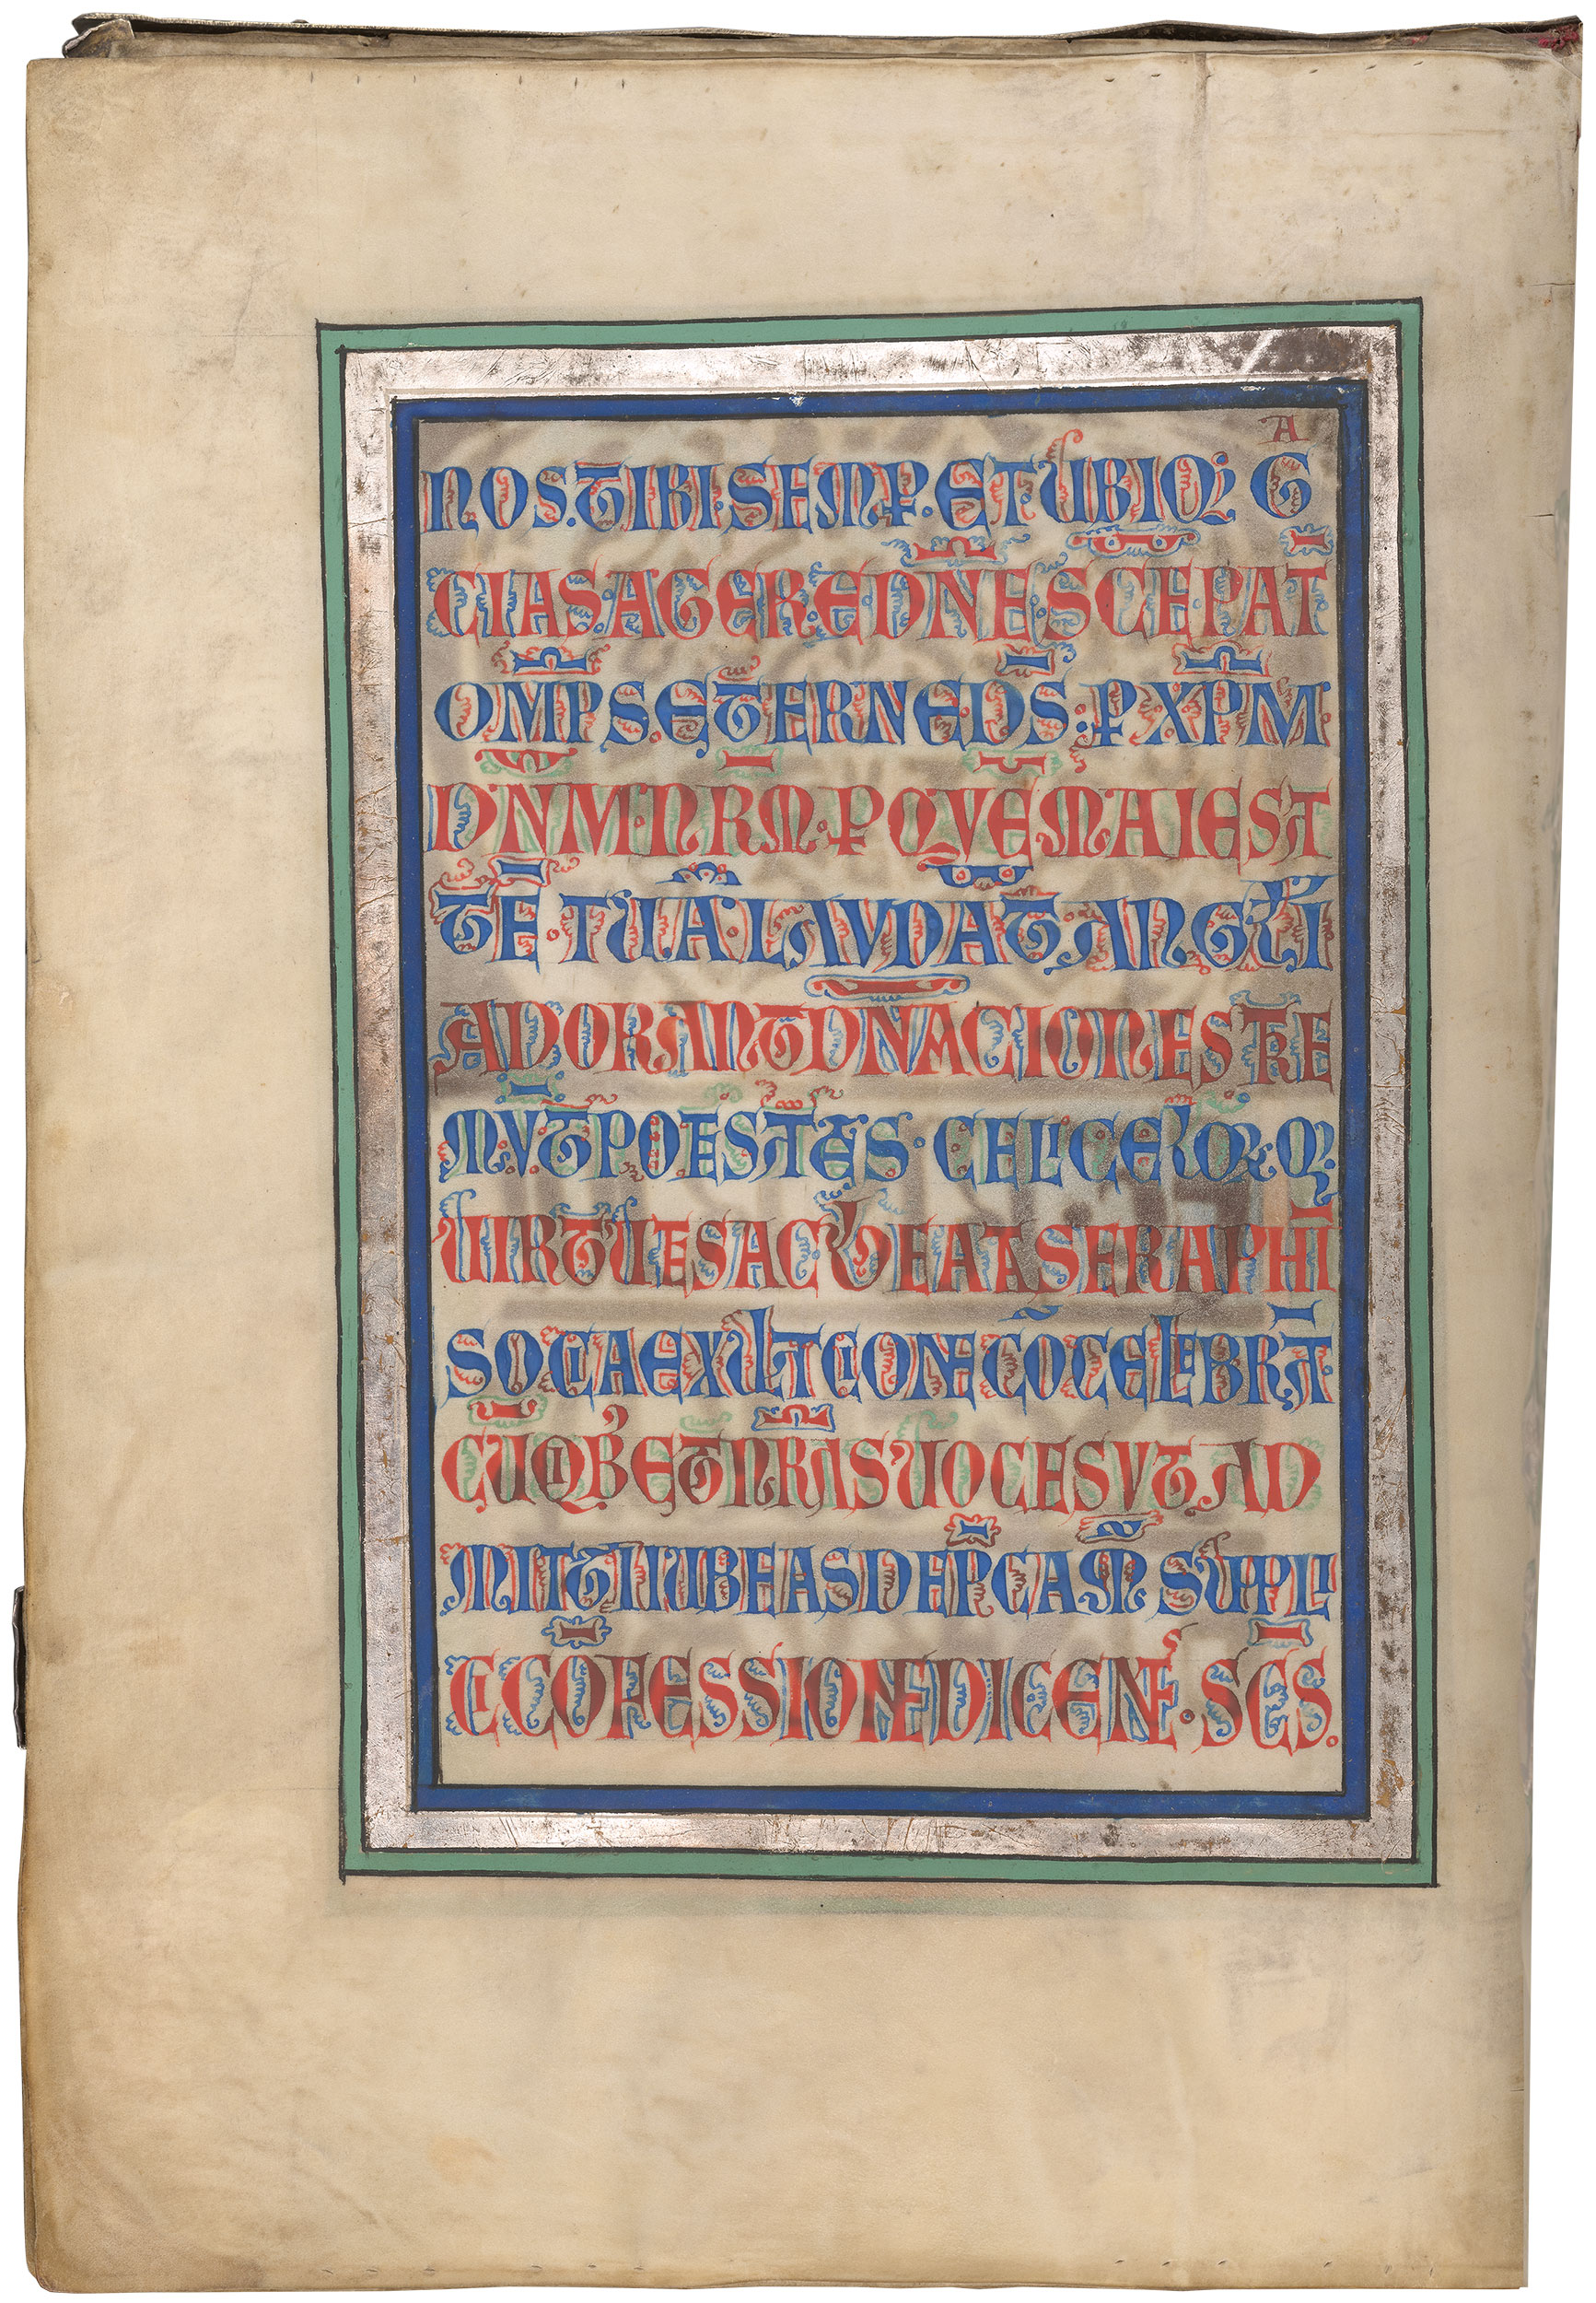 NOS. TIBI. SEMP̱. ET UBIQ; Gᴬ
CIAS AGERE DN̅E S̅C̅E PAT̅
OM̅P̅S ETERNE D̅S: P̱ X̅P̅M.
DN̅M. NR̅M. P̱ QVE̅ MAIEST
TE̅ TUA̅. LAVDA̅T ANGƚI
ADORANT DN̅ACIONES TRE
MV̅T POTESTATES. CELI CELOꝜ Q;
VIRTUTES AC BEATA SERAPHI̅
SOCIA EXULTACIONE CO̅CELEBRA̅T.
CU̅ QIB; ET NR̅AS UOCES VT AD
MITTI IUBEAS DEP̅CAM̅ SUPPLI
CI CO̅FESSIONE DICENT̕. S̅C̅S.